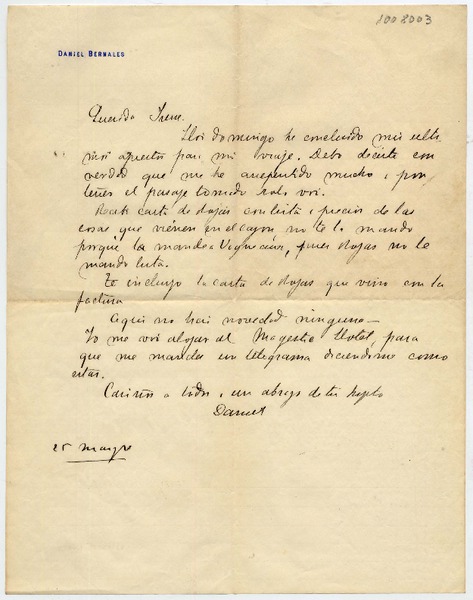 1008003
DANIEL BERNALES
Querida Irene.
Hoi domingo he concluido mis ulti
mos apuestos para mi viaje. Debo decirte con
verdad que me he arrepentido mucho i por
tener el pasaje tomado solo voi.
Recibi carta de Rojas con lista i precios de las
cosas que vienen en el cajon no te la mando
porqué la mandé a Vignecaux, pues Rojas no le
mandó lista.
Te incluyo la carta de Rojas que vino con la
factura
Aqui no hai novedad ninguna—
Yo me voi alojar al Magestic Hotel, para
que me mandes un telegrama diciendome como
estas.
Cariños a todos i un abrazo de tu
Daniel
25 Mayo